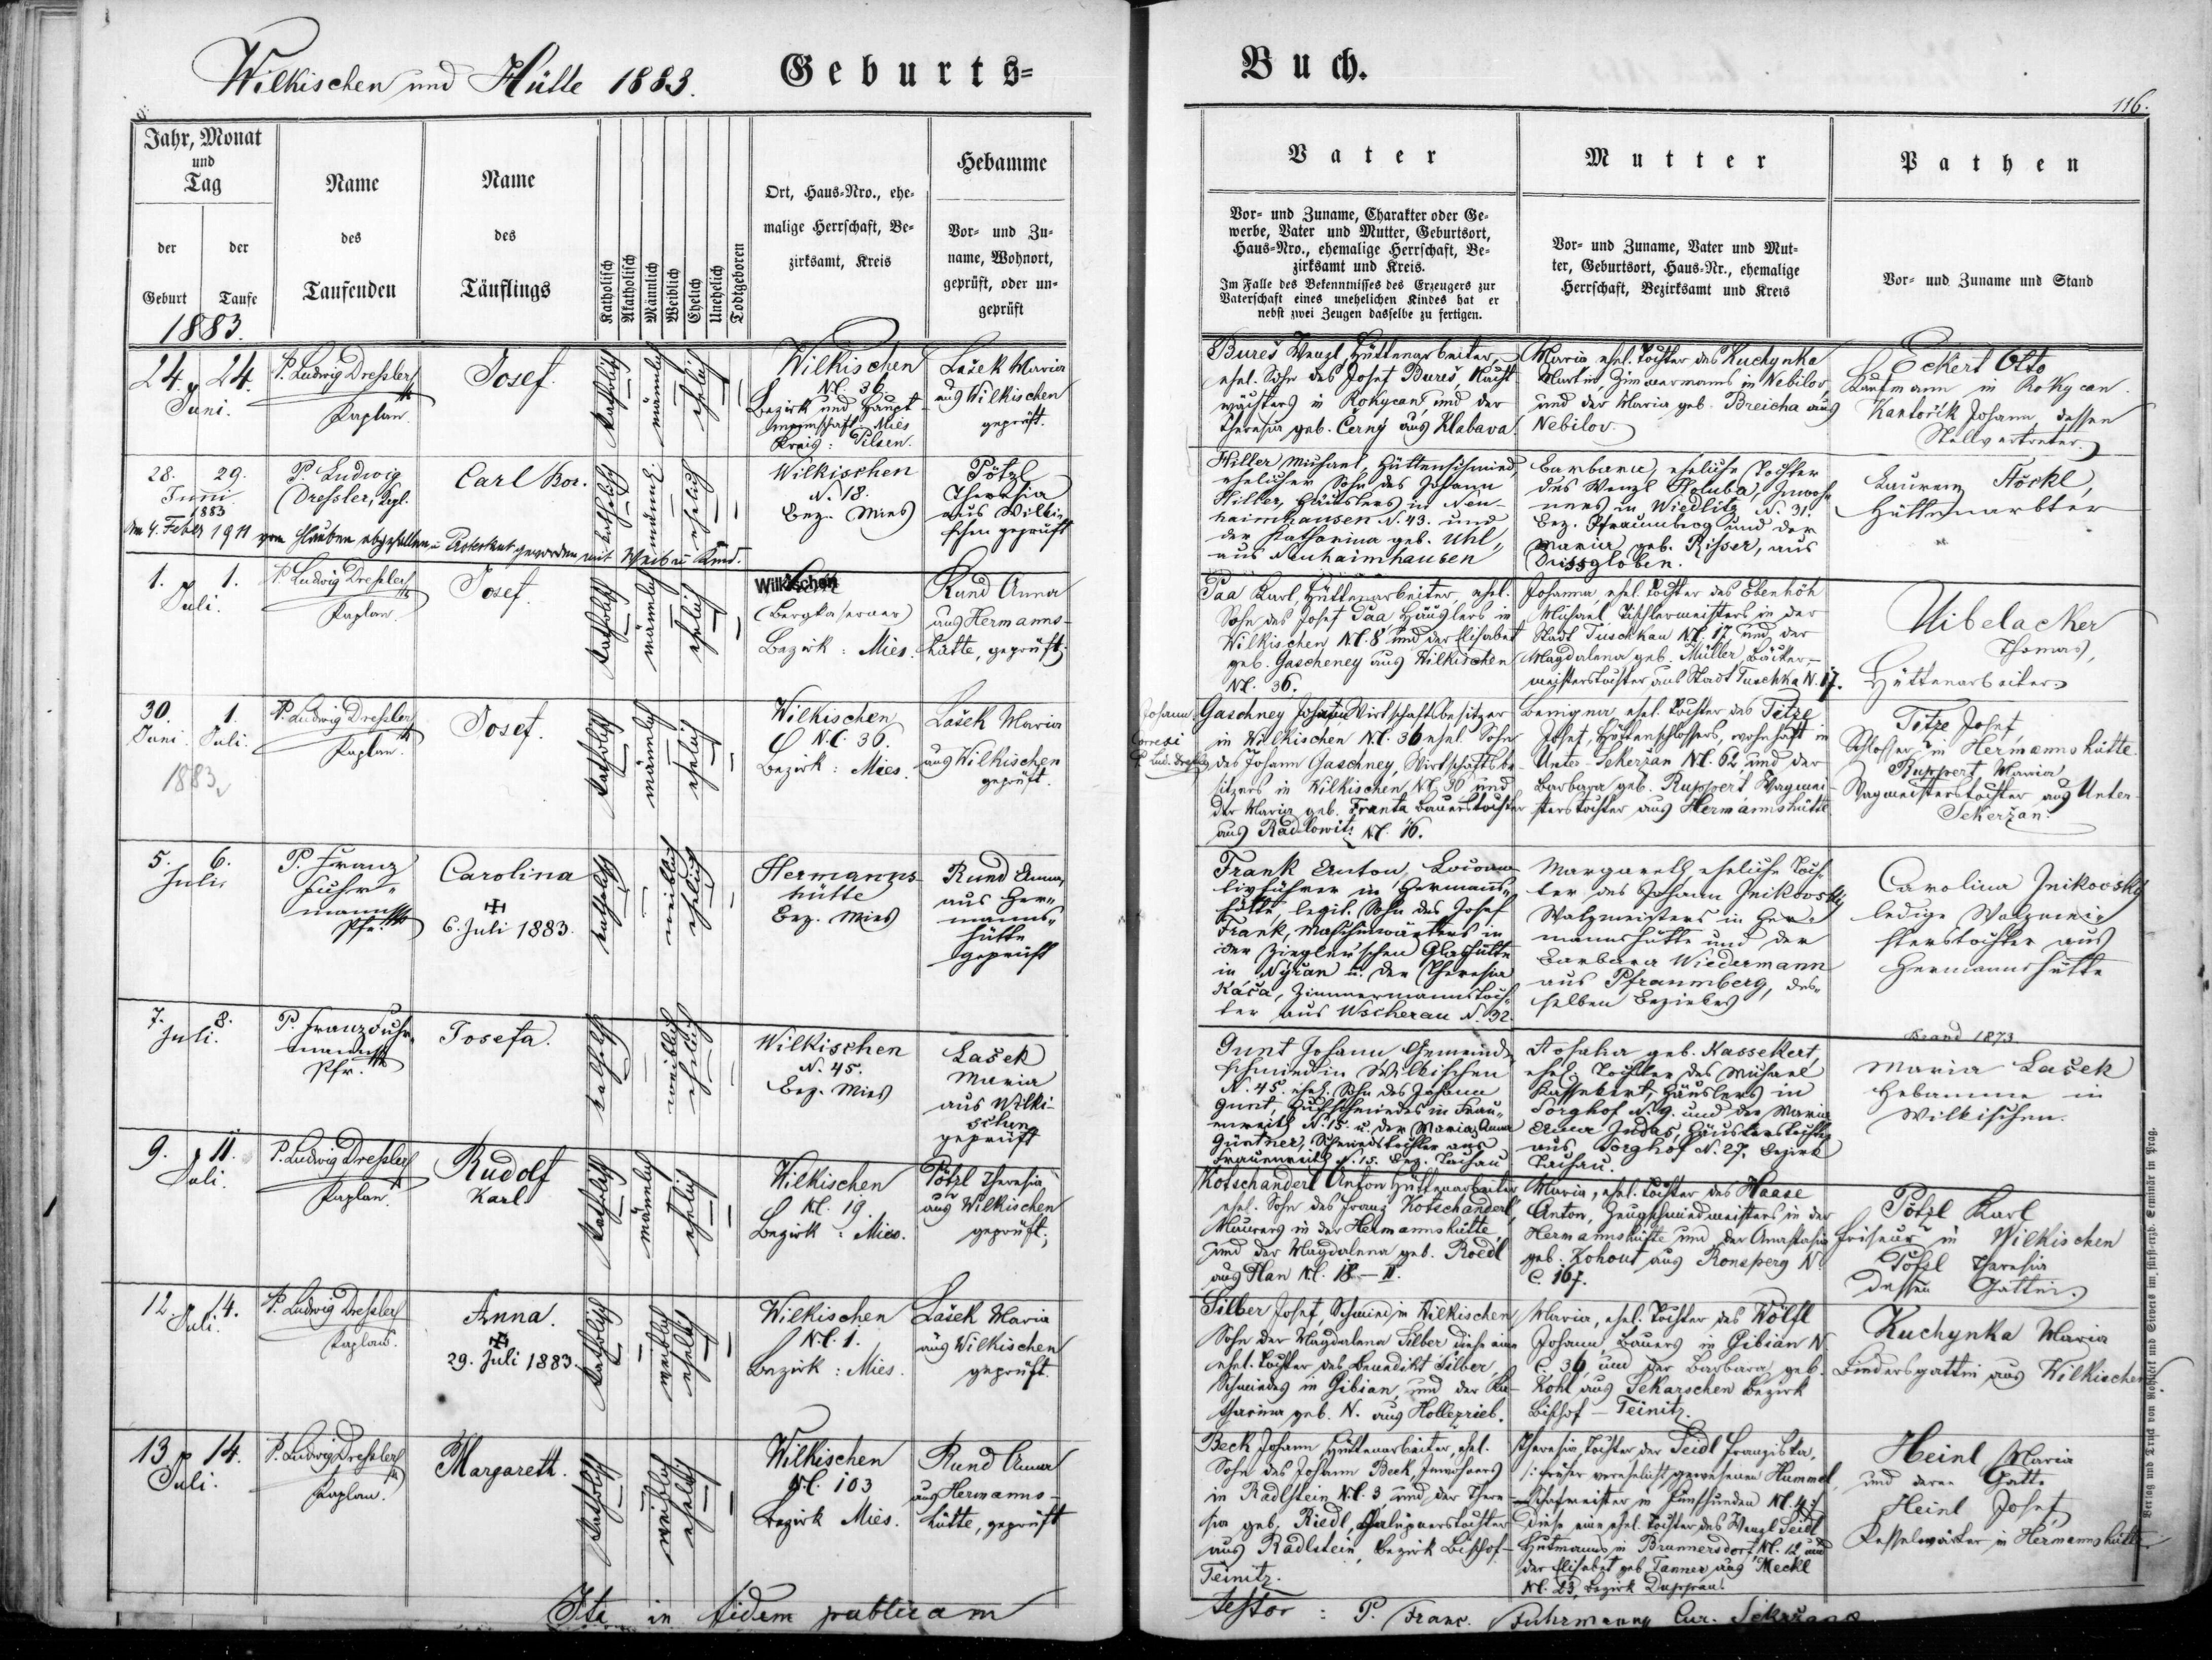 Wilkischen und Hütte 1883. Geburts=
Buch.
116.
Jahr, Monat
und
Tag
der
Geburt
der
Taufe
1883.
Name
des
Taufenden
Name
des
Täuflings
Katholisch
Akatholisch
Männlich
Weiblich
Ehelich
Unehelich
Todtgeboren
Ort, Haus=Nro., ehe=
malige Herrschaft, Be=
zirksamt, Kreis
Hebamme
Vor= und Zu=
name, Wohnort,
geprüft, oder un=
geprüft
Vater
Vor= und Zuname, Charakter oder Ge=
werbe, Vater und Mutter, Geburtsort,
Haus=Nro., ehemalige Herrschaft, Be=
zirksamt und Kreis.
Im Falle des Bekenntnisses des Erzeugers zur
Vaterschaft eines unehelichen Kindes hat er
nebst zwei Zeugen dasselbe zu fertigen.
Mutter
Vor= und Zuname, Vater und Mut=
ter, Geburtsort, Haus=Nr., ehemalige
Herrschaft, Bezirksamt und Kreis
Pathen
Vor= und Zuname und Stand
24. 24.
Juni.
P. Ludwig Dressler
Kaplan.
Josef.
katholisch
männlich
ehelich
Wilkischen
N.C. 36.
Bezirk und Haupt-
mannschaft: Mies
Kreis: Pilsen.
Lašek Maria
aus Wilkischen
geprüft.
Bureš Wenzl, Hüttenarbeiter,
ehel. Sohn des Josef Bureš, Nacht
wächters in Rokycan, und der
Theresia geb. Černy aus Klabava.
Maria ehel. Tochter des Kuchynka
Martin, Zimmermanns in Nebilov,
und der Maria geb. Breicha aus
Nebilov.
Eckert Otto
Kaufmann in Rokycan.
Kantořík Johann dessen
Stellvertreter.
28. 29.
Juni
1883
P. Ludwig
Dressler, Kpl.
Carl Bor.
katholisch
männl.
ehelich
Wilkischen
N. 18.
Bez. Mies
Pötzl
Theresia
aus Wilki-
schen geprüft
Hiller Michael, Hüttenschmied,
ehelicher Sohn des Johann
Hiller, Häuslers in Neu-
haimhausen N. 43. und
der Katharina geb. Uhl,
aus Neuhaimhausen
Barbara, eheliche Tochter
des Wenzl Holuba, Inwoh-
ners in Wiedlitz N. 31.
Bez. Pfraumberg und der
Maria geb. Risser, aus
Dissgloben.
Laurenz Stöckl,
Hüttenarbter
Am 4. Feber 1911 vom Glauben abgefallen u. Protestant geworden mit Weib u. Kind.
1. 1.
Juli.
P. Ludwig Dressler
Kaplan.
Josef.
katholisch
männlich
ehelich
Wilkischen
(Bergkaserner)
Bezirk: Mies.
Rund Anna
aus Hermanns-
hütte, geprüft.
Paa Karl, Hüttenarbeiter, ehel.
Sohn des Josef Paa, Häuslers in
Wilkischen N.C. 8, und der Elisabet
geb. Gascheney aus Wilkischen
N.C. 36.
Johanna, ehel. Tochter des Ebenhöh
Michael, Tischlermeisters in der
Stadt Tuschkau N.C. 17, und der
Magdalena geb. Müller, Bäcker-
meisterstochter aus Stadt Tuschka N. 17.
Uibelacker
Thomas,
Hüttenarbeiter.
30. 1.
Juni. Juli.
1883
P. Ludwig Dressler
Kaplan.
Josef.
katholisch
männlich
ehelich
Wilkischen
N.C. 36.
Bezirk: Mies.
Lašek Maria
aus Wilkischen
geprüft.
Johann
Correxi
P. Lud. Dressler
Gaschney Johann Wirtschaftsbesitzer
in Wilkischen N.C. 36 ehel. Sohn
des Johann Gaschney, Wirtschaftsbe-
sitzers in Wilkischen N.C. 36 und
der Maria geb. Franta Bauerstochter
aus Radlowitz N.C. 16.
Benigna, ehel. Tochter des Tetze
Josef, Hüttenschlossers, wohnhaft in
Unter-Sekeržan N.C. 62, und der
Barbara geb. Ruppert Wagmei-
sterstochter aus Hermannshütte.
Tetze Josef,
Schlosser in Hermannshütte.
Ruppert Maria
Wagmeisterstochter aus Unter-
Sekeržan.
5. 6.
Juli
P. Franz
Fuhr-
mann
Pfr.
Carolina
6. Juli 1883.
katholisch
weiblich
ehelich
Hermanns-
hütte
Bez. Mies
Rund Anna
aus Her-
manns-
hütte
geprüft
Frank Anton, Locomo-
tivführer in Hermanns-
hütte, legit. Sohn des Josef
Frank, Maschinwärters in
der Ziegler'schen Glashütte
in Nýřan u. der Theresia
Káča, Zimmermannstoch-
ter aus Wscherau N. 32.
Margareth, eheliche Toch-
ter des Johann Jnikovsky
Walzmeisters in Her-
mannshütte und der
Barbara Wiedermann
aus Pfraumberg, des-
selben Bezirkes
Carolina Jnikovský
ledige Walzmei-
sterstochter aus
Hermannshütte
7. 8.
Juli.
P. Franz Fuhr-
mann
Pfr.
Josefa.
katholisch
weiblich
ehelich
Wilkischen
N. 45.
Bez. Mies
Lašek
Maria
aus Wilki-
schen
geprüft
Gunt Johann, Gemeinde-
schmied in Wilkischen
N. 45. ehel. Sohn des Johann
Gunt, Hufschmiedes in Frau-
enreith N. 15. u. der Maria Anna
Güntner, Schmiedstochter aus
Frauenreith N. 15. Bez. Tachau
Rosalia geb. Kassekert,
ehel. Tochter des Michael
Kassekert, Häuslers in
Sorghof N. 9. und der Maria
Anna Judas, Häuslerstochter
aus Sorghof N. 27. Bezirk
Tachau.
Brand 1873
Maria Lašek
Hebamme in
Wilkischen.
9. 11.
Juli.
P. Ludwig Dressler
Kaplan.
Rudolf
Karl
katholisch
männlich
ehelich
Wilkischen
N.C. 19.
Bezirk: Mies.
Pötzl Theresia
aus Wilkischen
geprüft.
Kotschanderl Anton Hüttenarbeiter
ehel. Sohn des Franz Kotschanderl,
Maurers in der Hermannshütte,
und der Magdalena geb. Roedl
aus Plan N.C. 18 - II.
Maria, ehel. Tochter des Haase
Anton, Zeugschmiedmeisters in der
Hermannshütte und der Anastasia
geb. Kohout aus Ronsperg N.
C. 167.
Pötzl Karl
Friseur in Wilkischen
Pötzl Theresia
dessen Gattin.
12. 14.
Juli.
P. Ludwig Dressler
Kaplan.
Anna.
29. Juli 1883.
katholisch
weiblich
ehelich
Wilkischen
N.C. 1.
Bezirk: Mies.
Lašek Maria
aus Wilkischen
geprüft.
Silber Josef, Schmied in Wilkischen
Sohn der Magdalena Silber, diese eine
ehel. Tochter des Benedikt Silber,
Schmiedes in Gibian, und der Ka-
tharina geb. N. aus Hollezrieb.
Maria, ehel. Tochter des Wölfl
Johann, Bauers in Gibian N.
C. 36, und der Barbara geb.
Kohl aus Sekarschen Bezirk
Bischof-Teinitz.
Kuchynka Maria
Bindersgattin aus Wilkischen
13. 14.
Juli.
P. Ludwig Dressler
Kaplan.
Margareth.
katholisch
weiblich
ehelich
Wilkischen
N.C. 103
Bezirk Mies.
Rund Anna
aus Hermanns-
hütte, geprüft
Beck Johann Hüttenarbeiter, ehel.
Sohn des Johann Beck, Inwohners
in Radlstein N.C. 3, und der There-
sia geb. Riedl, Chalupnerstochter
aus Radlstein, Bezirk Bischof-
Teinitz.
Theresia, Tochter der Seidl Franziska,
früher verehelicht gewesenen Hummel,
Schafmeister in Fünfhunden N.C. 4;
diese eine ehel. Tochter des Wenzl Seidl
Hutmanns in Brunnersdorf N.C. 12 und
der Elisabet geb. Tanner aus Meckl
N.C. 23, Bezirk Duppau.
Heinl Maria
und deren Gatte
Heinl Josef,
Kesselwärter in Hermannshütte
Ita in fidem publicam
testor: P. Franc. Fuhrmann, Cur. Sekržano
Verlag und Druck von Rohliček und Sievers im fürst-erzb. Seminär in Prag.